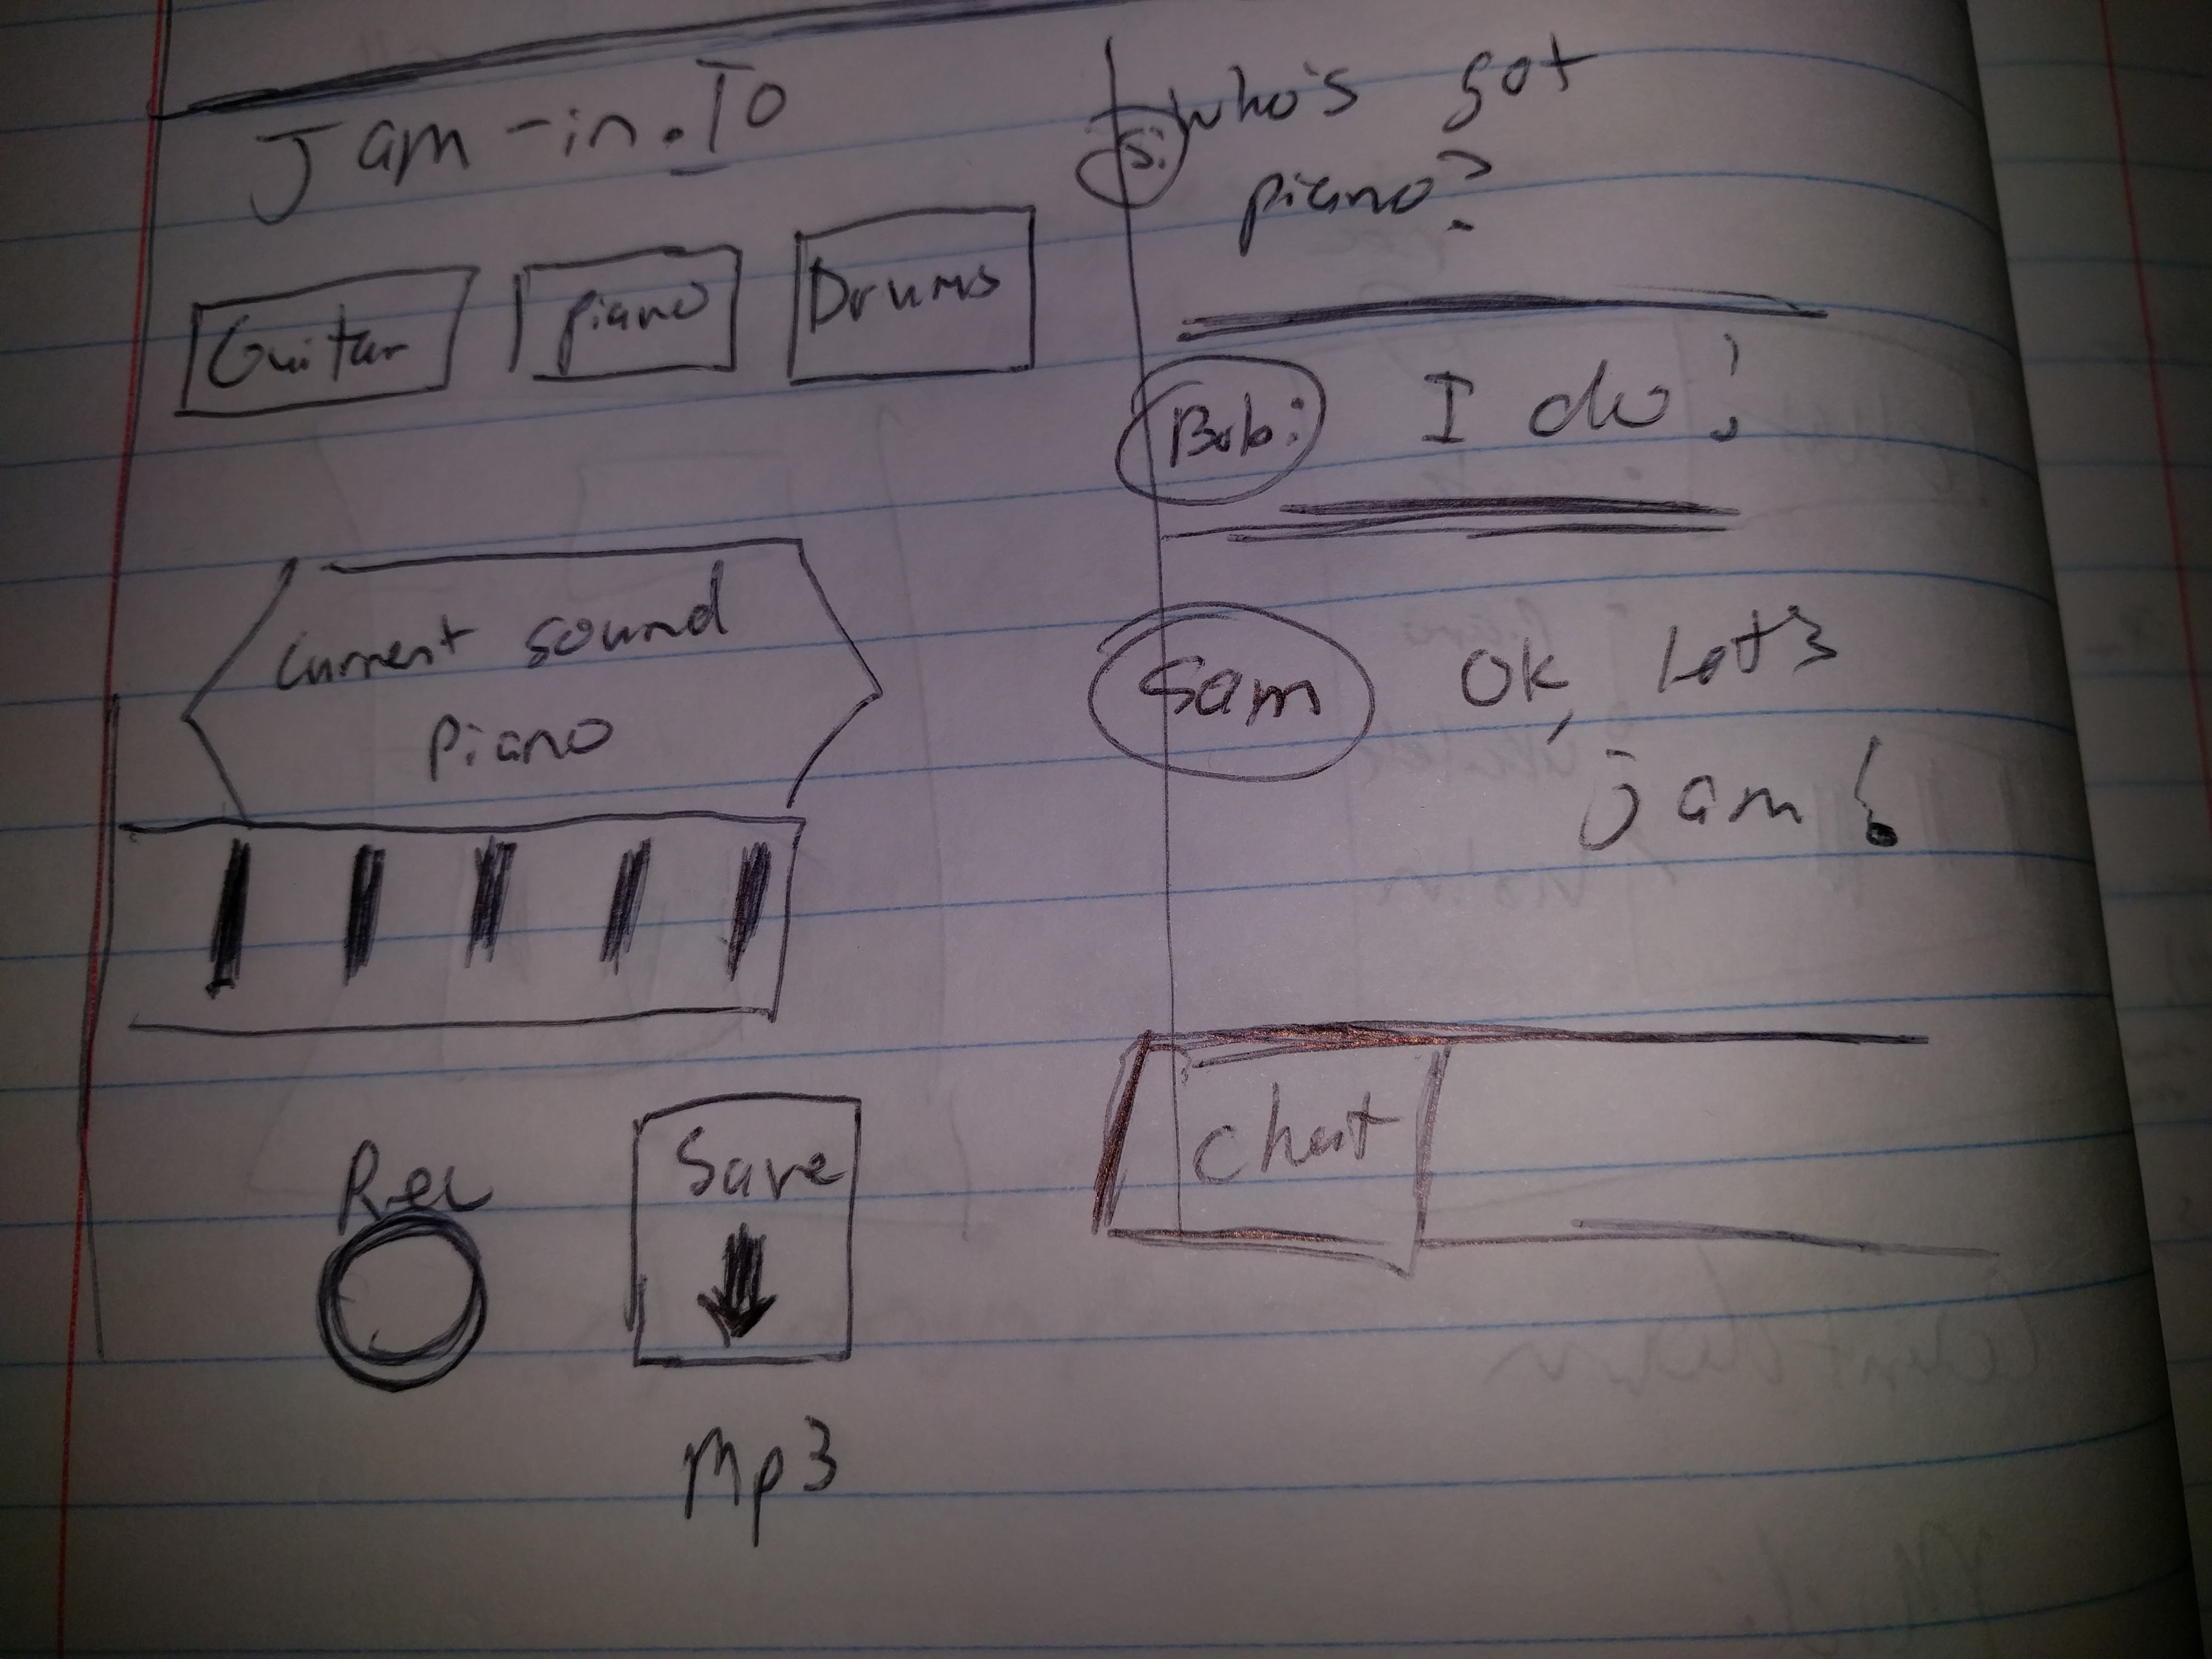 Jam-in.To
Guitar
piano
Drums
Current sound
Piano
Rec
Save
Mp3
S: who's got
piano?
Bob: I do!
Sam Ok, Let's
jam!
Chat